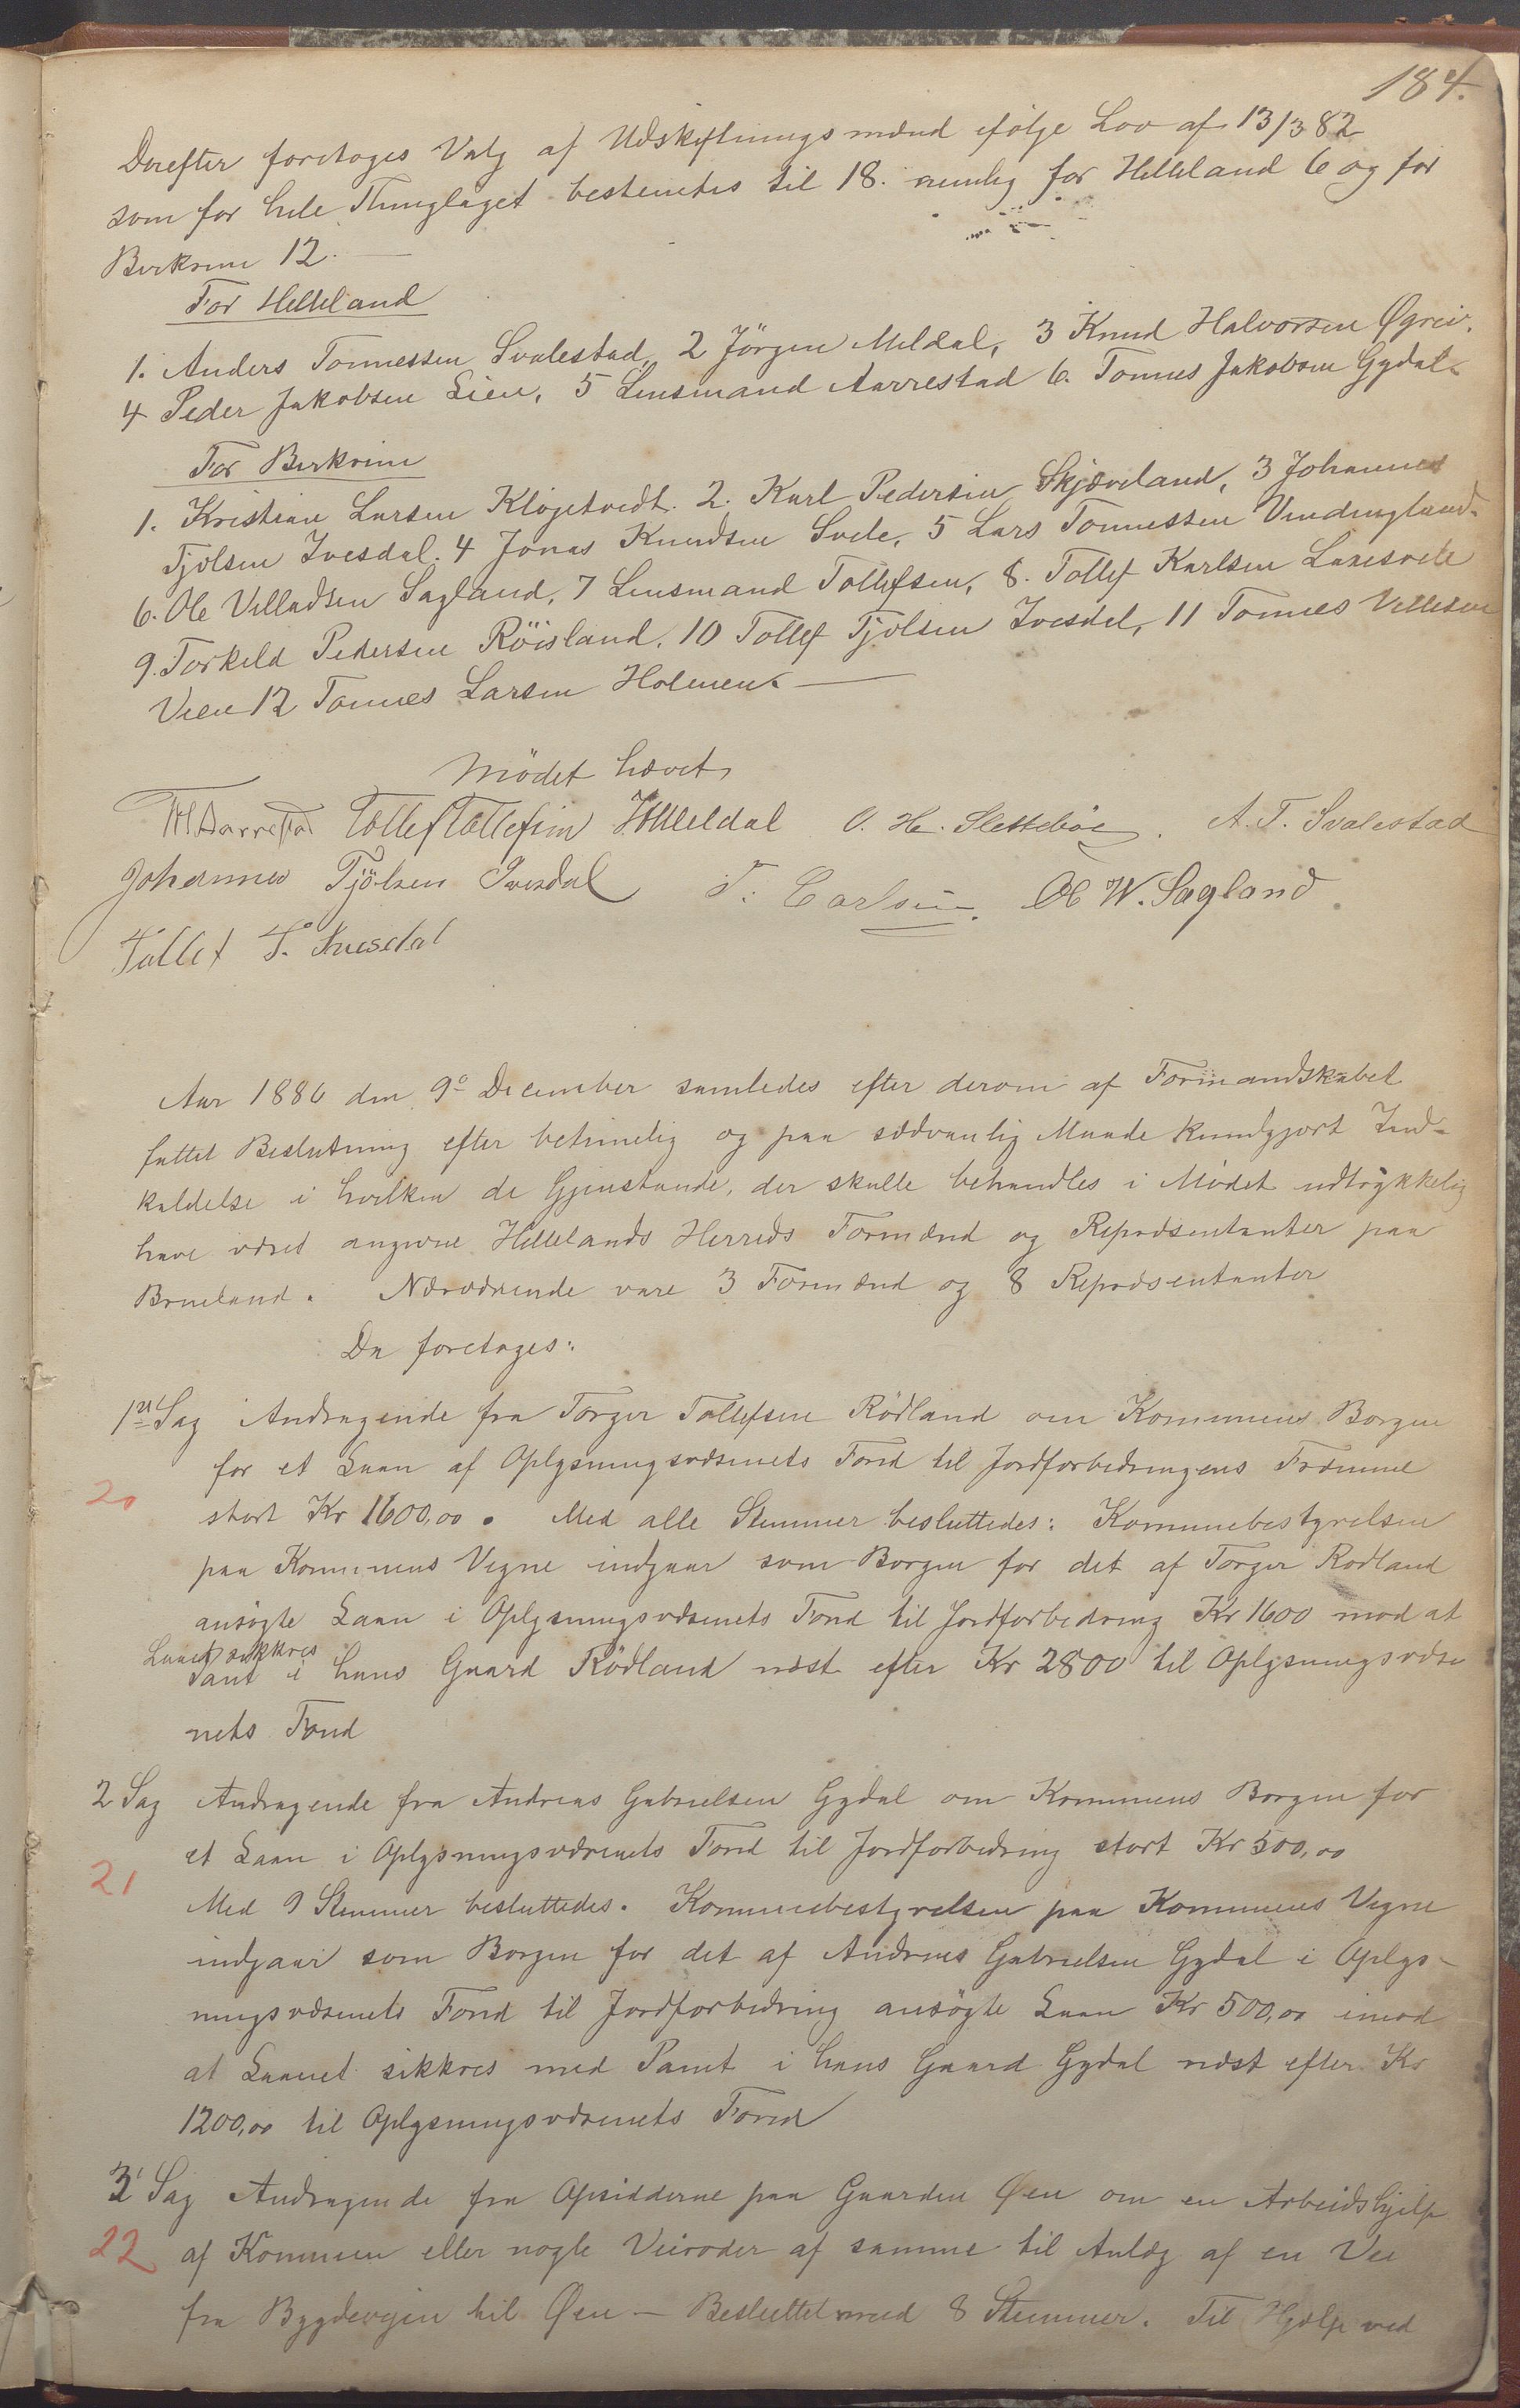 184.
Derefter foretoges Valg af Udskiftningsmænd ifølge Lov af 13/3 82
som for hele Thinglaget bestemtes til 18. nemlig for Helleland 6 og for
Birkrem 12.
For Helleland
1. Anders Tonnessen Svalestad, 2 Jörgen Meldal, 3 Knud Halvorsen Øgreid.
4 Peder Jakobsen Lien, 5 Lensmand Aarrestad 6. Tonnes Jakobsen Gydal.
For Birkrem
1. Kristian Larsen Kløgetvedt. 2. Karl Pedersen Skjæveland, 3 Johannes
Tjølsen Ivesdal. 4 Jonas Knudsen Svele, 5 Lars Tonnessen Vindingland.
6. Ole Villadsen Sagland, 7 Lensmand Tollefsen, 8. Tollef Karlsen Laxesvele
9. Torkeld Pedersen Röisland. 10 Tollef Tjølsen Ivesdal, 11 Tonnes Villesen
Veen 12 Tonnes Larsen Holmen.
Mödet hævet
TH Aarrestad Tollef Tollefsen JMeldal O. H. Slettebøe. A. T. Svalestad
Johannes Tjölsen Ivesdal T. Carlsen. Ole W. Sagland
Tollef T. Ivesdal
Aar 1886 den 9e December samledes efter derom af Formandskabet
fattet Beslutning efter betimelig og paa sædvanlig Maade kundgjort Ind-
kaldelse i hvilken de Gjenstande, der skulle behandles i Mødet udtrykkelig
have været angivne Hellelands Herreds Formænd og Repræsentanter paa
Brueland. Nærværende vare 3 Formænd og 8 Repræsentanter
Da foretages:
1st Sag Andragende fra Torger Tollefsen Rödland om Kommunens Borgen
for et Laan af Oplysningsvæsenets Fond til Jordforbedringens Fremme
20
stort Kr 1600,00. Med alle Stemmer besluttedes: Kommunebestyrelsen
paa Kommunens Vegne indgaar som Borgen for det af Torger Rødland
ansøgte Laan i Oplysningsvæsenets Fond til Jordforbedring Kr 1600 mod at
Laanet sikkres
Pant i hans Gaard Rödland næst efter Kr 2800 til Oplysningsvæse
nets Fond
2 Sag Andragende fra Andreas Gabrielsen Gydal om Kommunens Borgen for
et Laan i Oplysningsvæsenets Fond til Jordforbedring stort Kr 500,00
21
Med 9 Stemmer besluttedes. Kommunebestyrelsen paa Kommunens Vegne
indgaar som Borgen for det af Andreas Gabrielsen Gydal i Oplys-
ningsvæsenets Fond til Jordforbedring ansøgte Laan Kr 500,00 imod
at Laanet sikkres med Pant i hans Gaard Gydal næst efter Kr
1200,00 til Oplysningsvæsenets Fond
3 Sag Andragende fra Opsidderne paa Gaarden Øen om en Arbeidshjelp
22
af Kommunen eller nogle Veiroder af samme til Anlæg af en Vei
fra Bygdeveien til Øen — Besluttet med 8 Stemmer. Til Hjælp ved